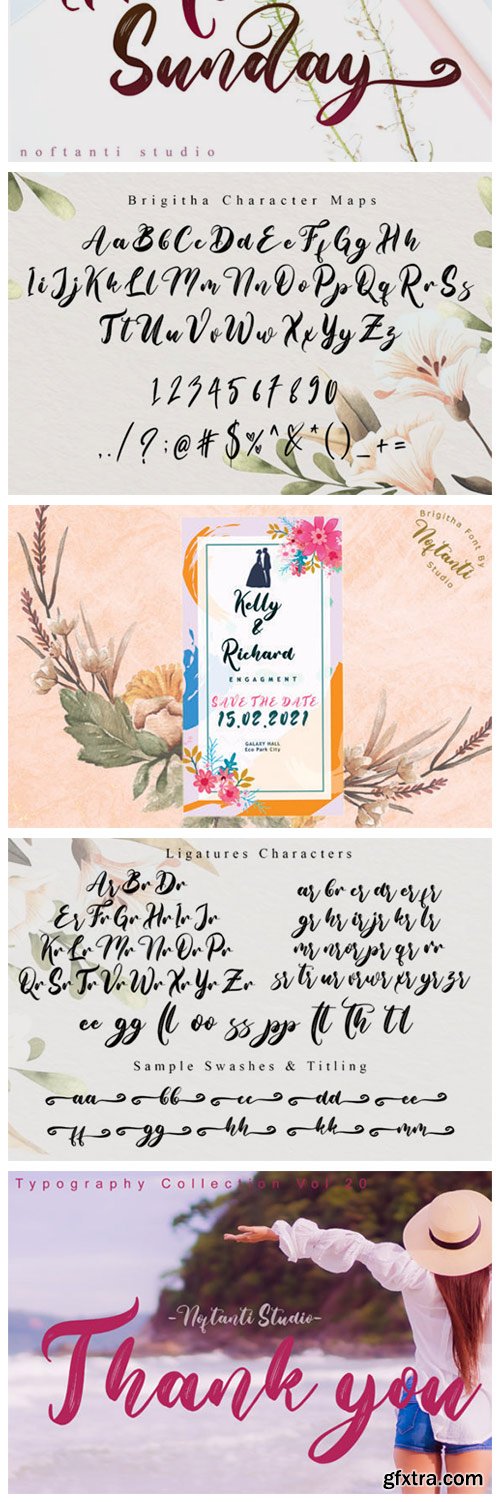 Sunday
noftanti studio
Brigitha Character Maps
Aa Bb Cc Dd Ee Ff Gg Hh
Ii Jj Kk Ll Mm Nn Oo Pp Qq Rr Ss
Tt Uu Vv Ww Xx Yy Zz
1234567890
,./?;@#$%^&*()_+=
Brigitha Font By
Noftanti
Studio
Kelly
&
Richard
ENGAGMENT
SAVE THE DATE
15.02.2021
GALAXY HALL
Eco Park City
Ligatures Characters
Ar Br Dr
Er Fr Gr Hr Ir Jr
Kr Lr Mr Nr Or Pr
Qr Sr Tr Vr Wr Xr Yr Zr
ar br cr dr er fr
gr hr ir jr kr lr
mr nr or pr qr rr
sr tr ur vr wr xr yr zr
ee gg ll oo ss pp tt th tl
Sample Swashes & Titling
aa bb cc dd ee
ff gg hh kk mm
Typography Collection Vol 20
-Noftanti Studio-
Thank you
gfxtra.com